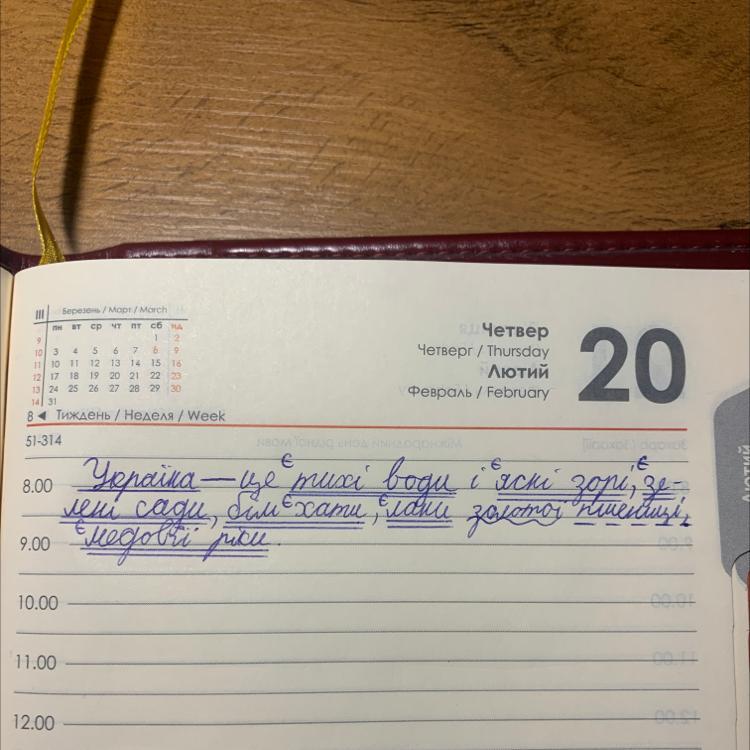 III Березень / Март / March
пн вт ср чт пт сб нд
9 1 2
10 3 4 5 6 7 8 9
11 10 11 12 13 14 15 16
12 17 18 19 20 21 22 23
13 24 25 26 27 28 29 30
14 31
Четвер
Четверг / Thursday
Лютий
Февраль / February
20
8 ◄ Тиждень / Неделя / Week
51-314
8.00 Україна — це є тихі води і є ясні зорі, є зе-
лені сади, білі є хати, є лани золотої пшениці,
9.00 є медовії ріки.
10.00
11.00
12.00